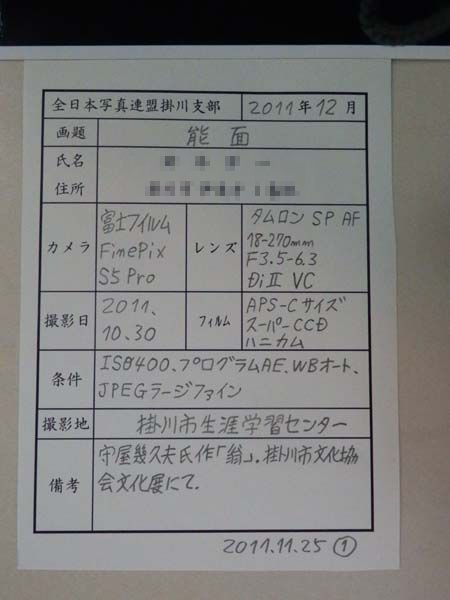 全日本写真連盟掛川支部 2011年12月
画題 能面
氏名
住所
カメラ 富士フイルム
FinePix
S5 Pro
レンズ タムロン SP AF
18-270mm
F3.5-6.3
DiⅡ VC
撮影日 2011.
10.30
フィルム APS-Cサイズ
スーパーCCD
ハニカム
条件 ISO400、プログラムAE、WBオート、
JPEGラージファイン
撮影地 掛川市生涯学習センター
備考 守屋幾久夫氏作「翁」.掛川市文化協
会文化展にて.
2011.11.25 ①